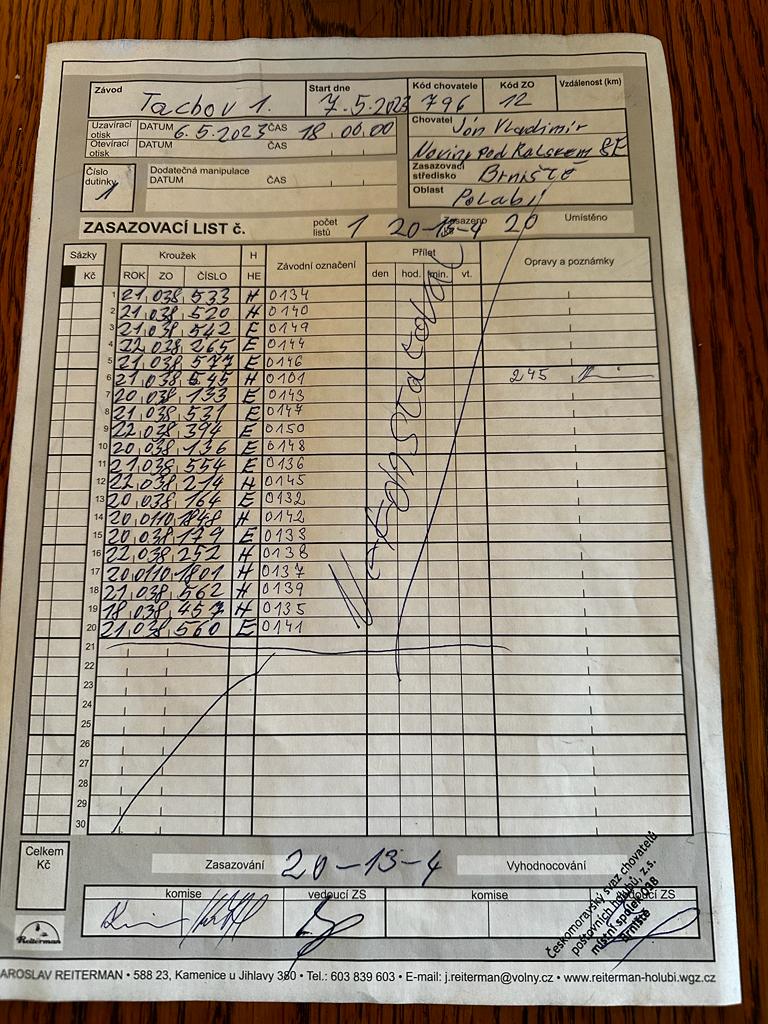 Závod Tachov 1. Start dne 7.5.2023 Kód chovatele 796 Kód ZO 12 Vzdálenost (km)
Uzavírací otisk DATUM 6.5.2023 ČAS 18,00,00
Otevírací otisk DATUM ČAS
Chovatel Jón Vladimír
Noviny pod Ralskem
Číslo dutinky 1 Dodatečná manipulace DATUM ČAS
Zasazovací středisko Brniště
Oblast Polabí
ZASAZOVACÍ LIST č. počet listů 1 20-13-4 Zasazeno 20 Umístěno
Sázky Kroužek H Závodní označení Přílet Opravy a poznámky
Kč ROK ZO ČÍSLO HE den hod. min. vt.
1 21 038 533 H 0134
2 21 038 520 H 0140
3 21 038 542 E 0149
4 22 038 265 E 0144
5 21 038 577 E 0146
6 21 038 545 H 0101 245
7 20 038 133 E 0143
8 21 038 531 E 0147
9 22 038 394 E 0150
10 20 038 136 E 0148
11 21 038 554 E 0136
12 22 038 214 H 0145
13 20 038 164 E 0132
14 20 0110 1848 H 0142
15 20 038 179 E 0133
16 22 038 252 H 0138
17 20 0110 1801 H 0137
18 21 038 562 H 0139
19 18 038 457 H 0135
20 21 038 560 E 0141
21
22
23
24
25
26
27
28
29
30
Celkem Kč
Zasazování 20-13-4 Vyhodnocování
komise vedoucí ZS komise vedoucí ZS
Českomoravský svaz chovatelů
poštovních holubů, z.s.
místní spolek 038
Brniště
Reiterman
AROSLAV REITERMAN • 588 23, Kamenice u Jihlavy 380 • Tel.: 603 839 603 • E-mail: j.reiterman@volny.cz • www.reiterman-holubi.wgz.cz